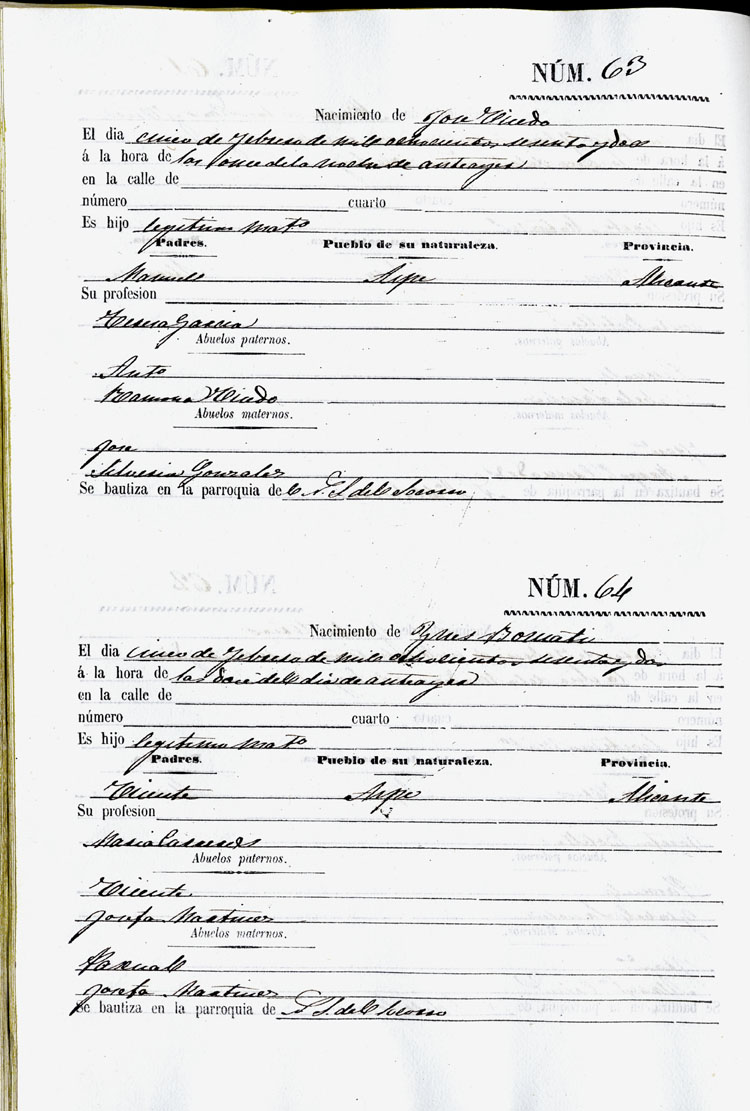 NÚM. 63
Nacimiento de Jose
El dia cinco de Febrero de mil ochocientos sesenta y dos
á la hora de las once de la noche de anteayer
en la calle de
número cuarto
Es hijo legitimo Mat.º
Padres. Pueblo de su naturaleza. Provincia.
Manuel Aspe Alicante
Su profesion
Teresa Garcia
Abuelos paternos.
Ant.º
Ramona
Abuelos maternos.
Jose
Silvesia Gonzalez
Se bautiza en la parroquia de N. S. del Socorro
NÚM. 64
Nacimiento de Ynes Bomati
El dia cinco de Febrero de mil ochocientos sesenta y dos
á la hora de las doce del dia de anteayer
en la calle de
número cuarto
Es hijo legitimo Mat.º
Padres. Pueblo de su naturaleza. Provincia.
Vicente Aspe Alicante
Su profesion
Maria
Abuelos paternos.
Vicente
Josefa Martinez
Abuelos maternos.
Pascual
Josefa Martinez
Se bautiza en la parroquia de N. S. del Socorro